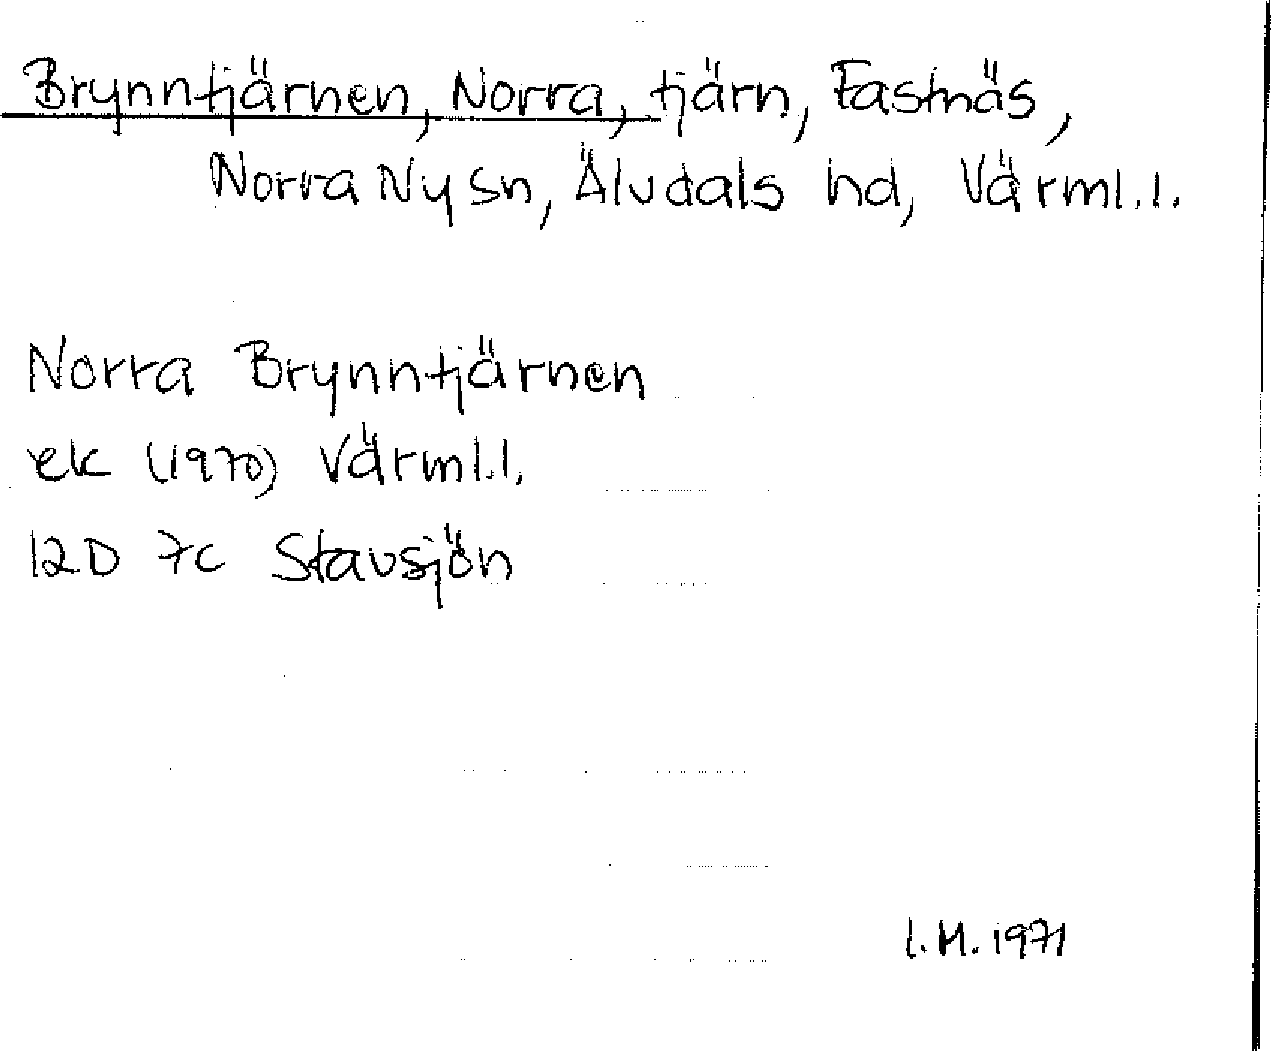 Brynntjärnen, Norra, tjärn, Fastnäs,
Norra Ny sn, Älvdals hd, Värml.l.
Norra Brynntjärnen
ek (1970) Värml.l.
12D 7c Stavsjön
I.M. 1971